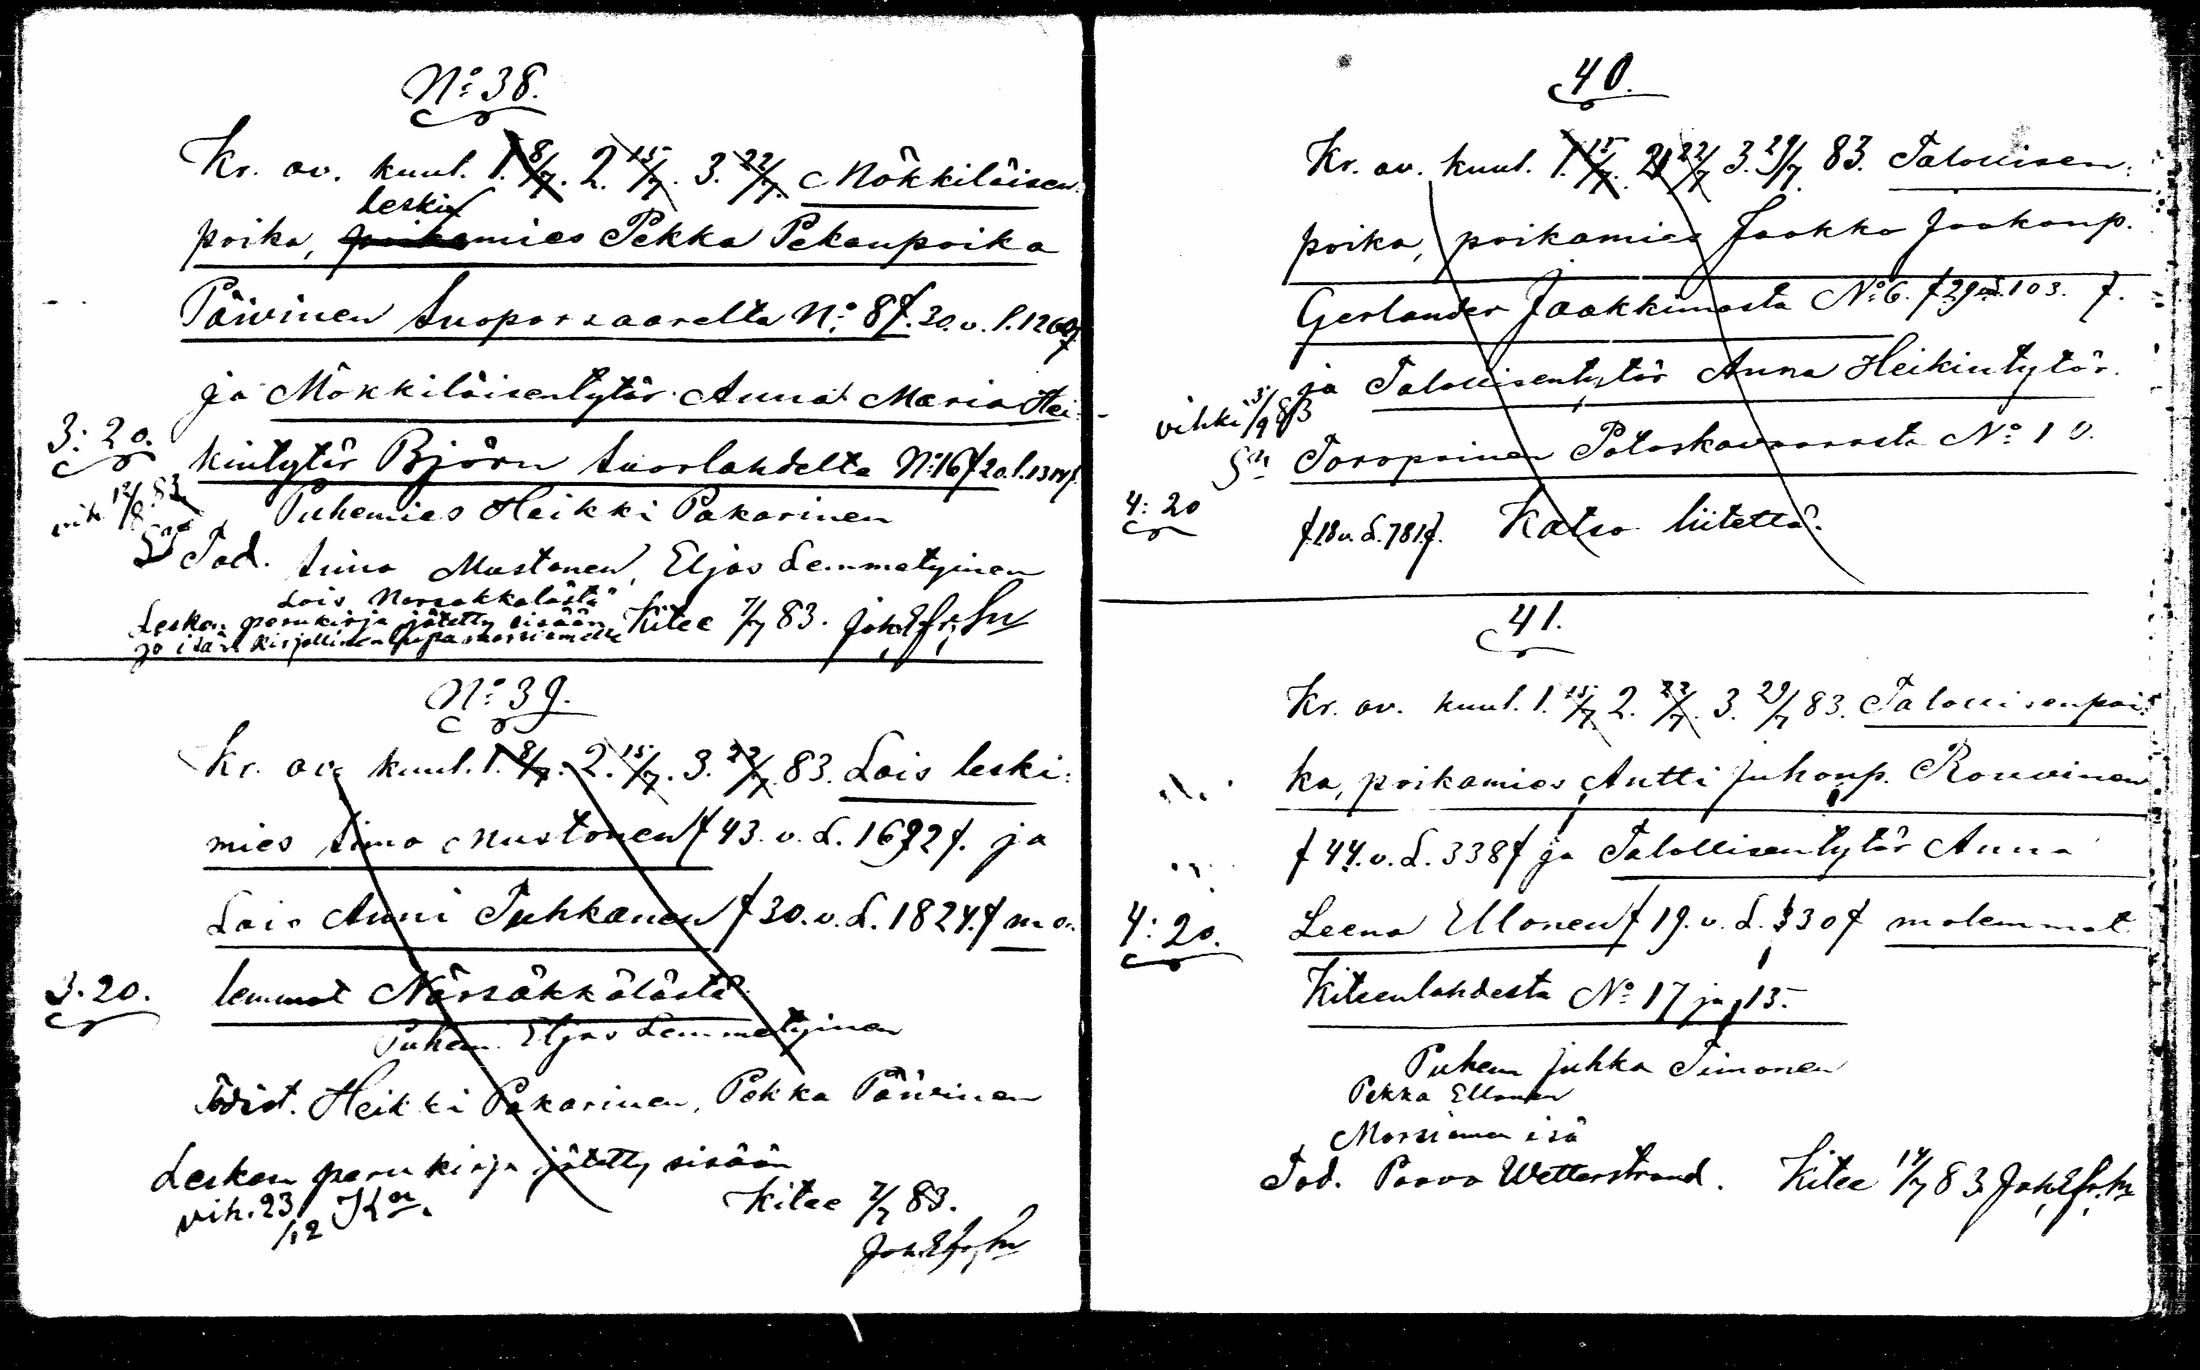 N:o 38.
Kr. av. kuul. 1. 8/7. 2. 15/7. 3. 22/7. Mökkiläisen-
leski
poika, poikamies Pekka Pekanpoika
Päivinen Suoparsaarelta N:o 8 f. 30. v. l. 1260 f
ja Mökkiläisentytär Anna Maria Hei-
3:20.
kintytär Björn Suorlahdelta N:o 16 f 20. l.
vih. 12/8 83
Puhemies Heikki Pakarinen
Tod. Simo Mustonen, Eljas Lemmetyinen
Lois Närsäkkälästä
Lesken perukirja jätetty sisään
ja isän kirjallinen lupa morsiamelle
Kitee 7/7 83.
N:o 39.
Kr. av. kuul. 1. 8/7. 2. 15/7. 3. 22/7. 83. Lois leski-
mies Simo Mustonen f 43. v. L. 1672 f. ja
Lois Anni Tuhkanen f 30. v. L. 1824. f mo-
3.20.
lemmat Närsäkkälästä.
Puhem. Eljas Lemmetyinen
Todist. Heikki Pakarinen, Pekka Päivinen
Lesken perukirja jätetty sisään
vih. 23/12
Kitee 7/7 83.
40.
Kr. av. kuul. 1. 15/7. 2. 22/7 3. 29/7 83. Talollisen-
poika, poikamies Jaakko Jaakonp.
Gerlander Jaakkimasta N:o 6. f 29 v. L. 103. f.
ja Talollisentytär Anna Heikintytär
vihki /9 83
Toropainen Potoskavaarasta N:o 10.
4:20
f. 18 v. L. 781 f. Katso liitettä.
41.
Kr. av. kuul. 1. 15/7 2. 22/7. 3. 29/7 83. Talollisenpoi-
ka, poikamies Antti Juhonp. Rouvinen
f 44. v. L. 338 f ja Talollisentytär Anna
4:20.
Leena Ellonen f 19. v. L. 330 f molemmat
Kiteenlahdesta N:o 17 ja 15.
Puhem Juhka Timonen
Pekka Ellonen
Morsiamen isä
Tod. Paavo Wetterstrand. Kitee 14/7 83